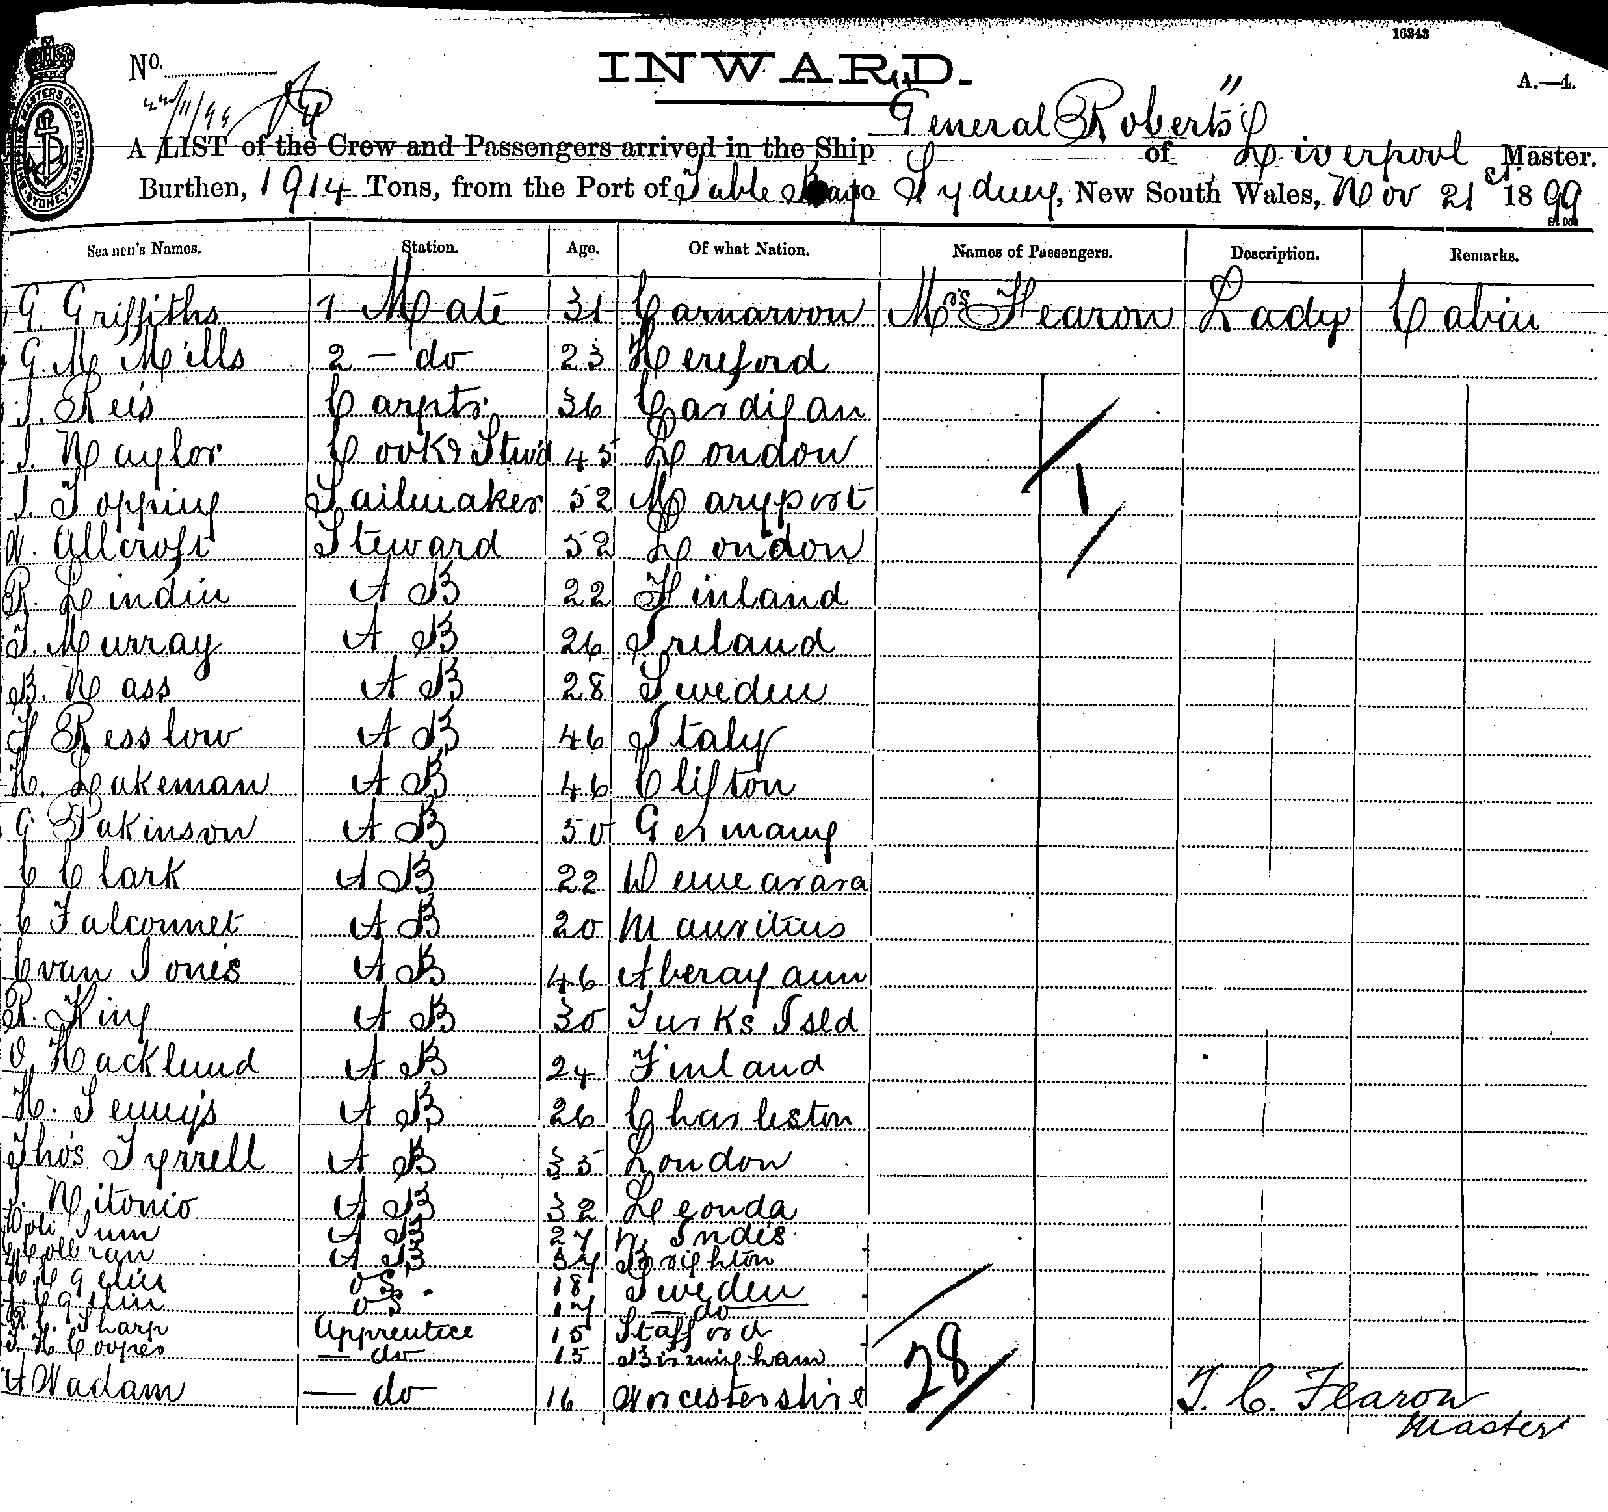 16343
No.
INWARD.
A.—4.
22/11/99
"General Roberts"
A LIST of the Crew and Passengers arrived in the Ship of Liverpool Master.
Burthen, 1914 Tons, from the Port of Table Bay to Sydney, New South Wales, Nov 21st 1899
Seamen's Names. Station. Age. Of what Nation. Names of Passengers. Description. Remarks.
G. Griffiths 1 Mate 31 Carnarvon Mrs Fearon Lady Cabin
G. M. Mills 2 — do 23 Hereford
Reis Carptr 36 Cardigan
Naylor Cook & Stwd 45 London
Topping Sailmaker 52 Maryport
W. Allcroft Steward 52 London
R. Lindin A B 22 Finland
T. Murray A B 26 Ireland
B. Nass A B 28 Sweden
Resslow A B 46 Italy
H. Lakeman A B 46 Clifton
G Pakinson A B 50 Germany
C Clark A B 22 Demearara
C Falconnet A B 20 Mauritius
Evan Jones A B 46 Aberayann
R. King A B 30 Turks Isld
O. Hacklund A B 24 Finland
H. Jennys A B 26 Charleston
Thos Tyrrell A B 35 London
Nitonio A B 32 Leonda
A B 27 W. Indis
A B 34 Brighton
O S. 18 Sweden
O S 17 — do
Sharp Apprentice 15 Stafford
H Cooper — do 15 Birmingham
A Wadam — do 16 Worcestershire
1
28
T. C. Fearon
Master